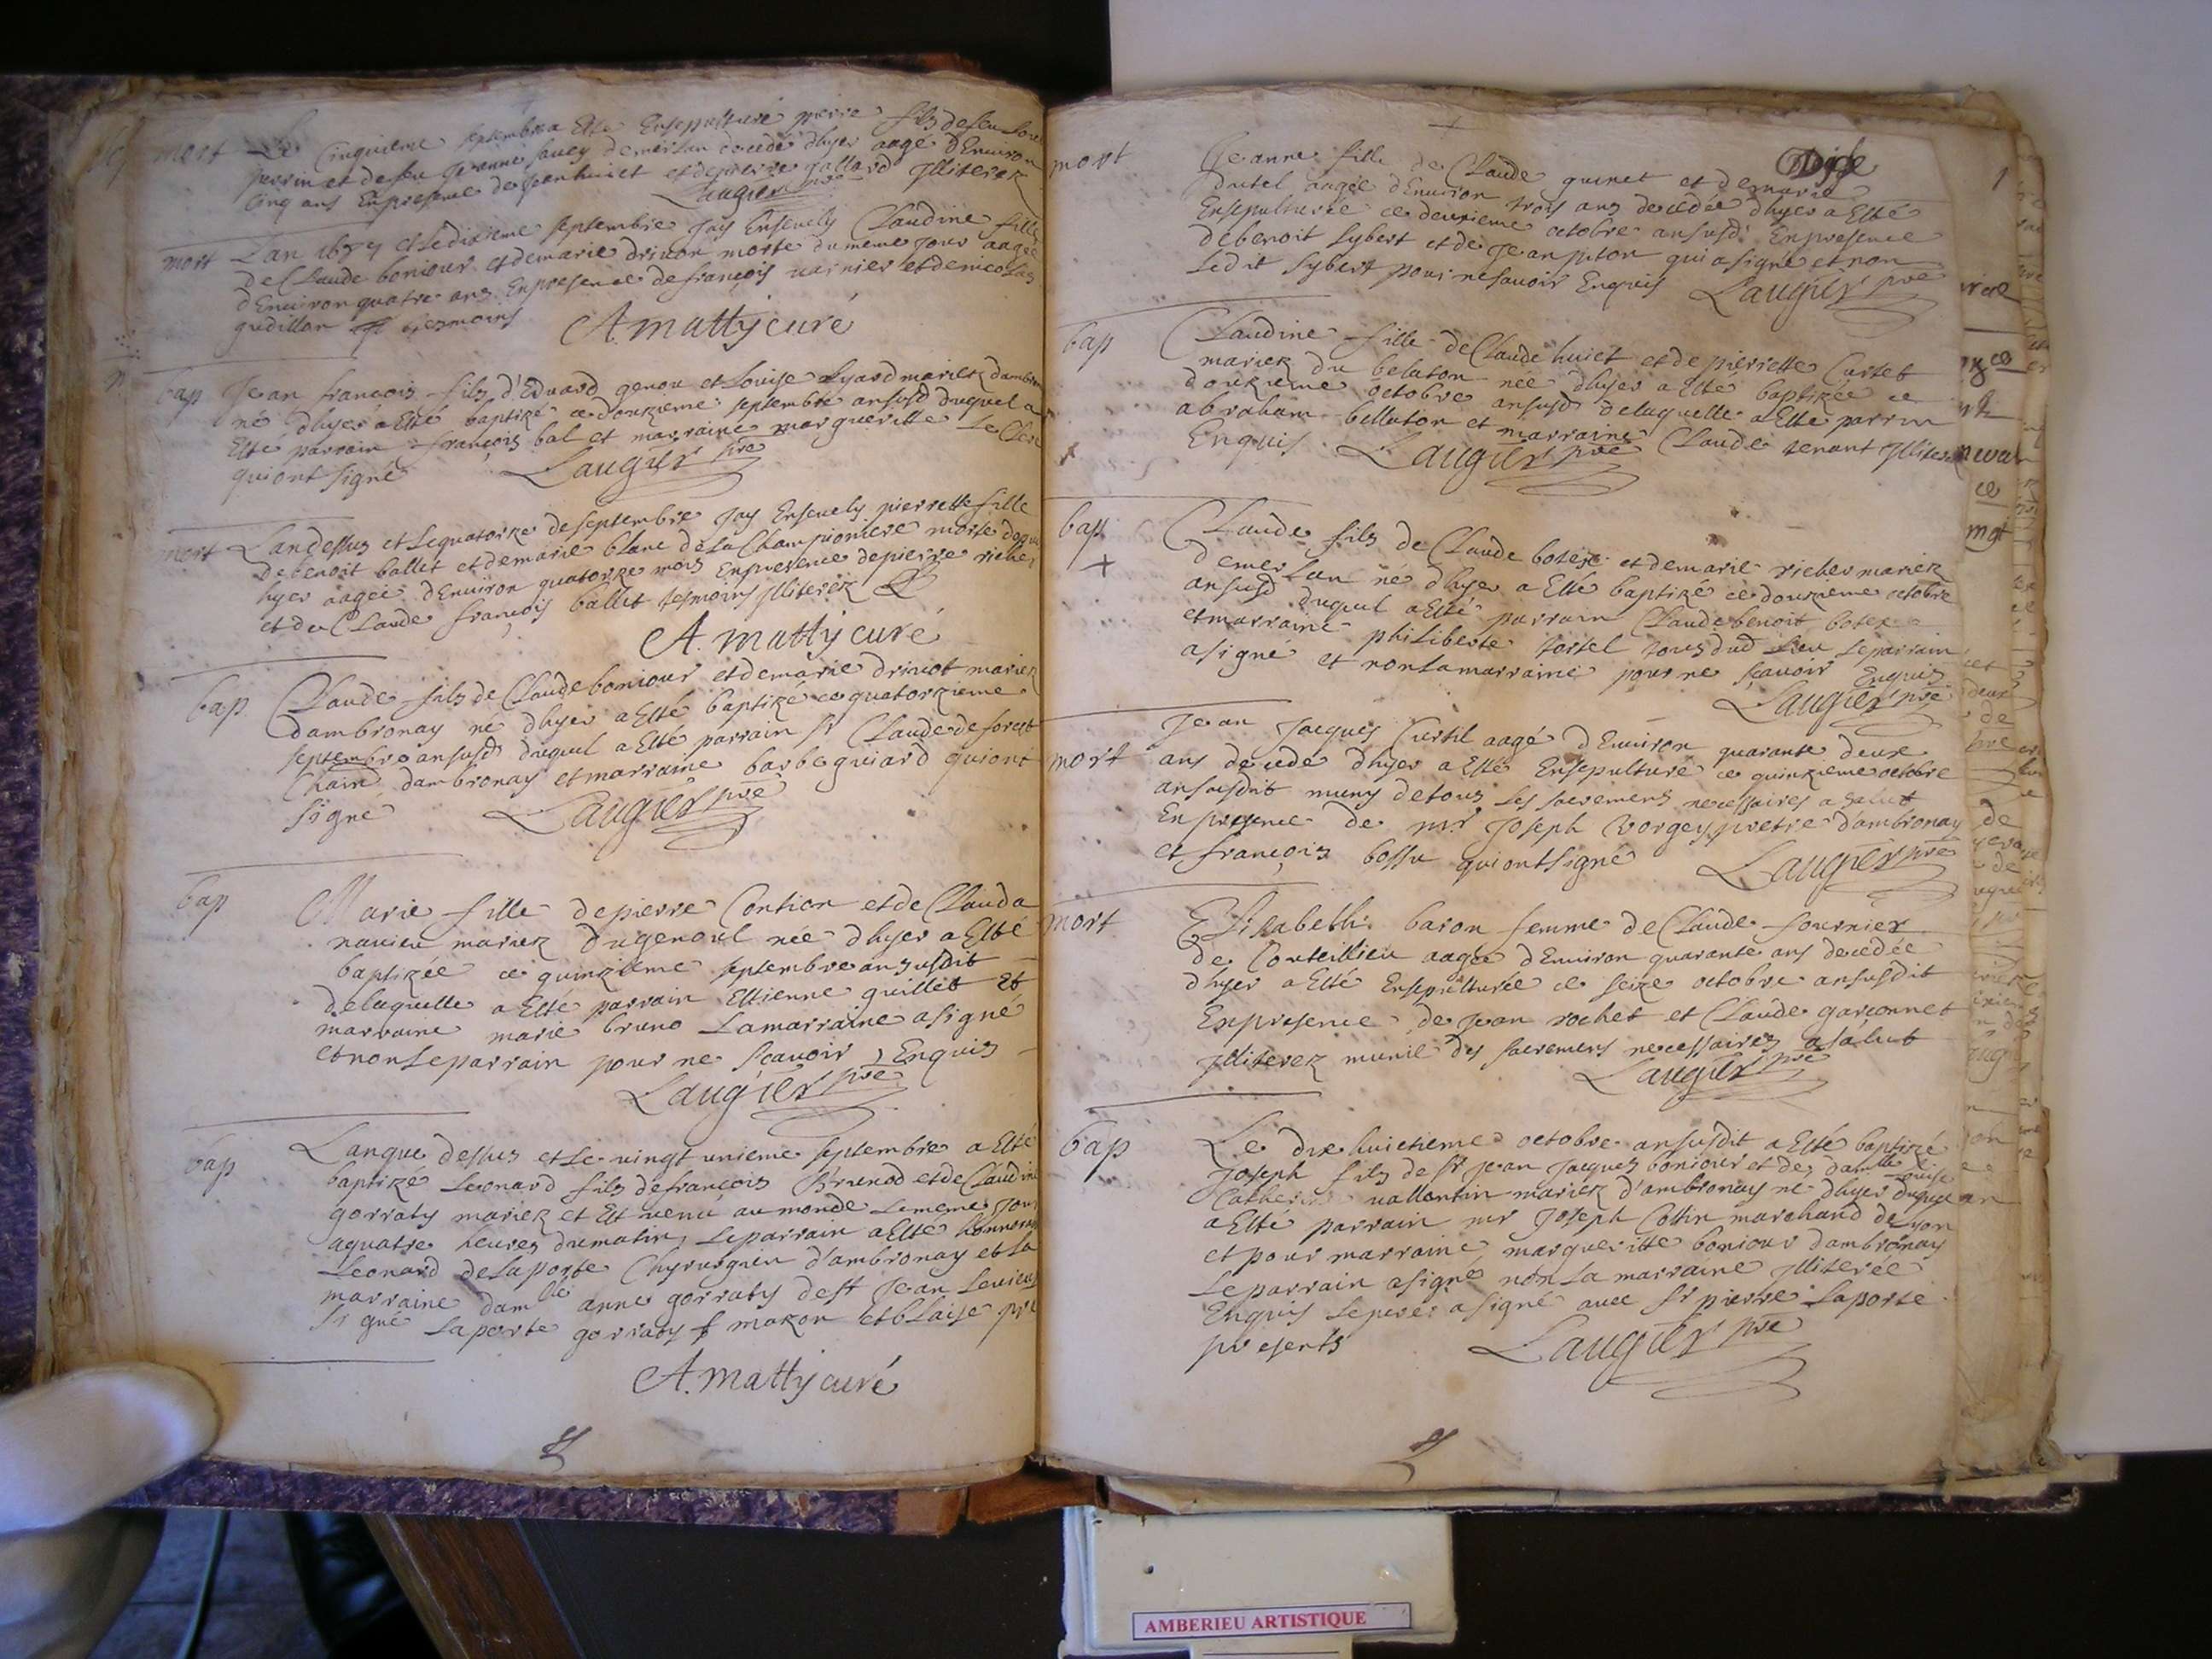 mort Le Cinquieme septembre a Esté Ensepulturé pierre fils de feu
perrin et de feu Jeanne sauey demerlan decedé dhyer aagé d'Environ
Cinq ans En presence de jean huiet et de pierre gallard Jlliterez
Laugier pre
mort Lan 1687 et Le dixieme septembre Jay Ensevely Claudine fille
de Claude boniour et demarie drivon morte du meme Jour aagée
d'Environ quatre ans En presence de françois varnier et de nicolas
gudillon tesmoins
A. matty curé
bap Jean françois fils d'Eduard genou et Louise Lyard mariez dambro
né dhyer a Esté baptizé ce douzieme septembre ansusd duquel a
Esté parrain françois bal et marraine margueritte Le Clerc
qui ont signé Laugier pre
mort Lan dessus et Le quatorze de septembre Jay Ensevely pierrette fille
de benoit ballet et demarie blanc de La Championiere morte depuis
hyer aagée d'Environ quatorze mois En presence de pierre richer
et de Claude françois ballet tesmoins Jlliterez
A. matty curé
bap Claude fils de Claude boniour et demarie drivot mariez
dambronay né dhyer a Esté baptizé ce quatorzieme
septembre ansusd duquel a Esté parrain sr Claude de forest
Chain dambronay et marraine barbe guiard qui ont
signé Laugier pre
bap Marie fille de pierre Contion et de Clauda
navieu mariez dugenoul née dhyer a Esté
baptizée ce quinzieme septembre ansusdit
delaquelle a Esté parrain Estienne guillet Et
marraine marie bruno La marraine a signé
et non Le parrain pour ne sçavoir, Enquis
Laugier pre
bap Lan que dessus et Le vingt unieme septembre a Esté
baptizé Leonard fils de françois Brunod et de Claudine
gorraty mariez et Est venu au monde Le meme Jour
a quatre heures du matin, Le parrain a Esté honnore
Leonard de La porte Chyrurgien d'ambronay et La
marraine damlle anne gorraty de st Jean Levieux
signé Laporte gorraty f mazon et blaise pre
A. matty curé
mort Jeanne fille de Claude guinet et de marie
dutel aagée d'Environ trois ans decedée dhyer a Esté
Ensepulturée ce deuxieme octobre ansusd En presence
de benoit Sybert et de Jean piton qui a signé et non
Ledit Sybert pour ne savoir Enquis Laugier pre
bap Claudine fille de Claude huiet et de pierrette Curtet
mariez du belaton née dhyer a Esté baptizée ce
douzieme octobre ansusd delaquelle a Esté parrin
abraham bellaton et marraine Claude tenant Jlliter
Enquis Laugier pre
bap Claude fils de Claude botex et demarie richer mariez
demerlan né dhyer a Esté baptizé ce douzieme octobre
ansusd duquel a Esté parrain Claude benoit botex
et marraine philiberte tortel tous dud Lieu Le parrain
a signé et non La marraine pour ne sçavoir Enquis
Laugier pre
mort Jean Jacques Curtil aagé d'Environ quarante deux
ans decedé dhyer a Esté Ensepulturé ce quinzieme octobre
ansusdit muny de tous Les sacremens necessaires a salut
En presence de mr Joseph Vorgey pretre d'ambronay
et françois bossu qui ont signé Laugier pre
mort Elisabeth baron femme de Claude fournier
de Couteillieu aagée d'Environ quarante ans decedée
dhyer a Esté Ensepulturée ce seize octobre ansusdit
En presence de Jean rochet et Claude garçonnet
Jlliterez munie des sacremens necessaires a salut
Laugier pre
bap Le dix huictieme octobre ansusdit a Esté baptizé
Joseph fils de sr Jean Jacques boniour et de damlle Louise
Catherine vallentin mariez d'ambronay né dhyer duquel
a Esté parrain mr Joseph Cottin marchand de Lyon
et pour marraine margueritte boniour dambronay
Le parrain a signé non La marraine Jlliterée
Enquis Le pere a signé avec sr pierre Laporte
presents Laugier pre
AMBERIEU ARTISTIQUE